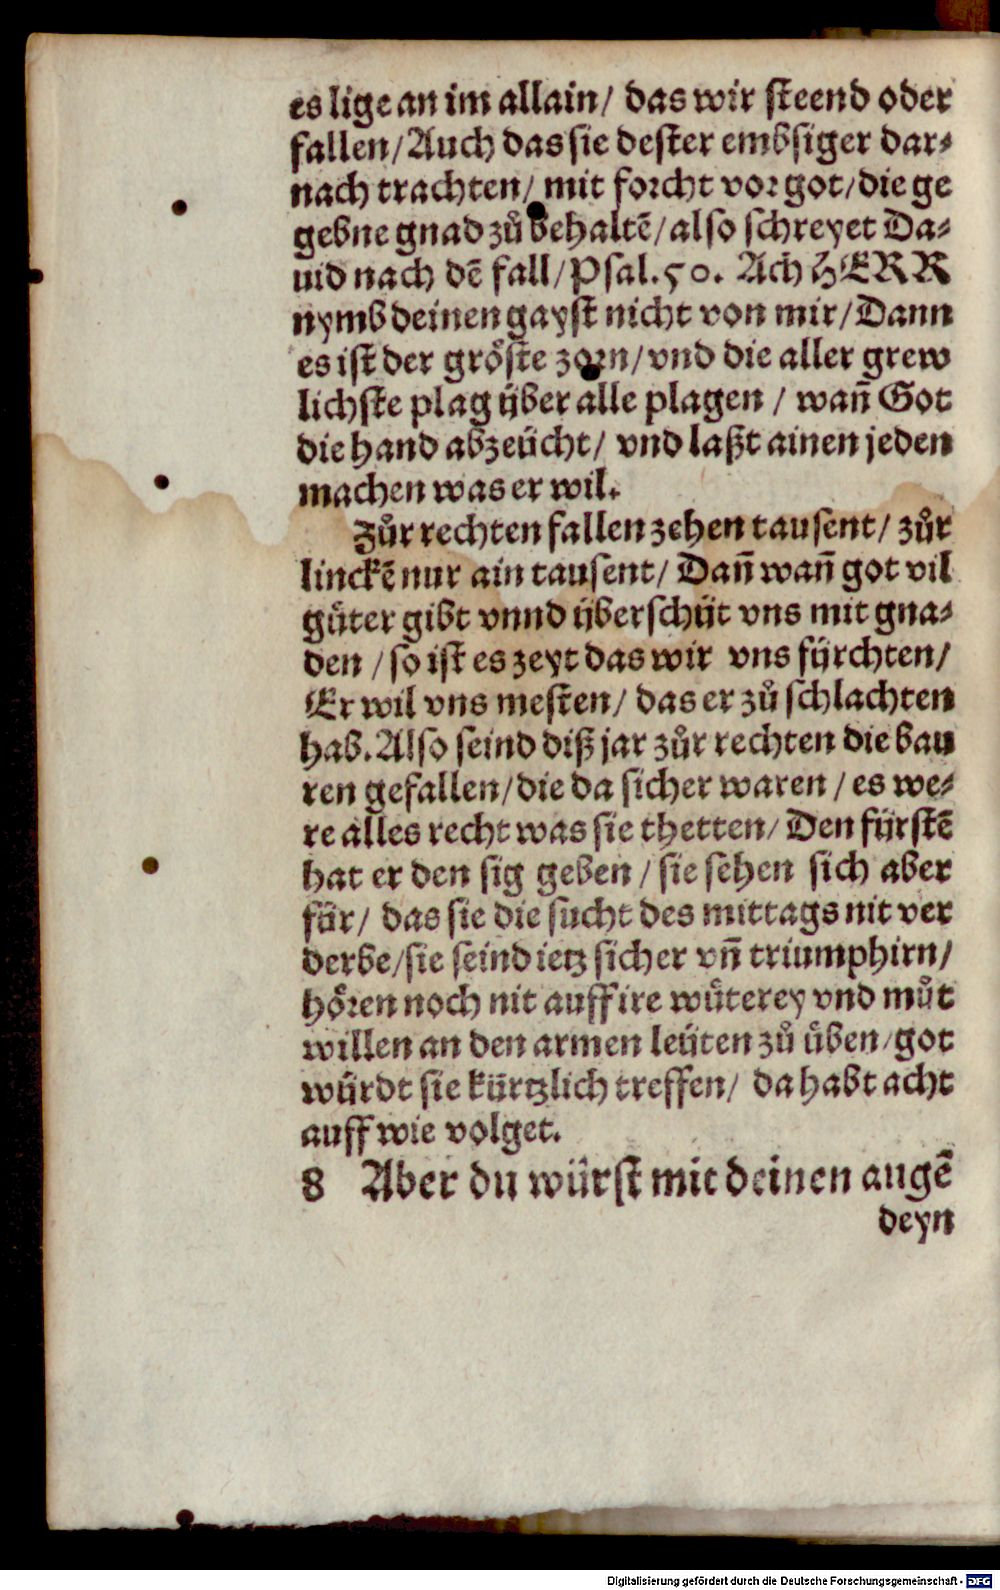 es lige an im allain/ das wir steend oder
fallen/Auch das sie dester embsiger dar⸗
nach trachten/ mit forcht vor got/die ge
gebne gnad zů behaltẽ/also schreyet Da⸗
uid nach dẽ fall/Psal.50. Ach HERR
nymb deinen gayst nicht von mir/Dann
es ist der gröste zorn/vnd die aller grew
lichste plag über alle plagen / wañ Got
die hand abzeücht/ vnd laßt ainen jeden
machen was er wil.
Zůr rechten fallen zehen tausent/ zůr
linckẽ nur ain tausent/ Dañ wañ got vil
gůter gibt vnnd überschüt vns mit gna⸗
den /so ist es zeyt das wir vns fürchten/
Er wil vns mesten/ das er zů schlachten
hab.Also seind diß jar zůr rechten die bau
ren gefallen/die da sicher waren / es we⸗
re alles recht was sie thetten/ Den fürstẽ
hat er den sig geben / sie sehen sich aber
für/ das sie die sucht des mittags nit ver
derbe/sie seind ietz sicher vñ triumphirn/
hören noch nit auff ire wůterey vnd můt
willen an den armen leüten zů üben/got
würdt sie kürtzlich treffen/ da habt acht
auff wie volget.
8 Aber du würst mit deinen augẽ
deyn
Digitalisierung gefördert durch die Deutsche Forschungsgemeinschaft - DFG